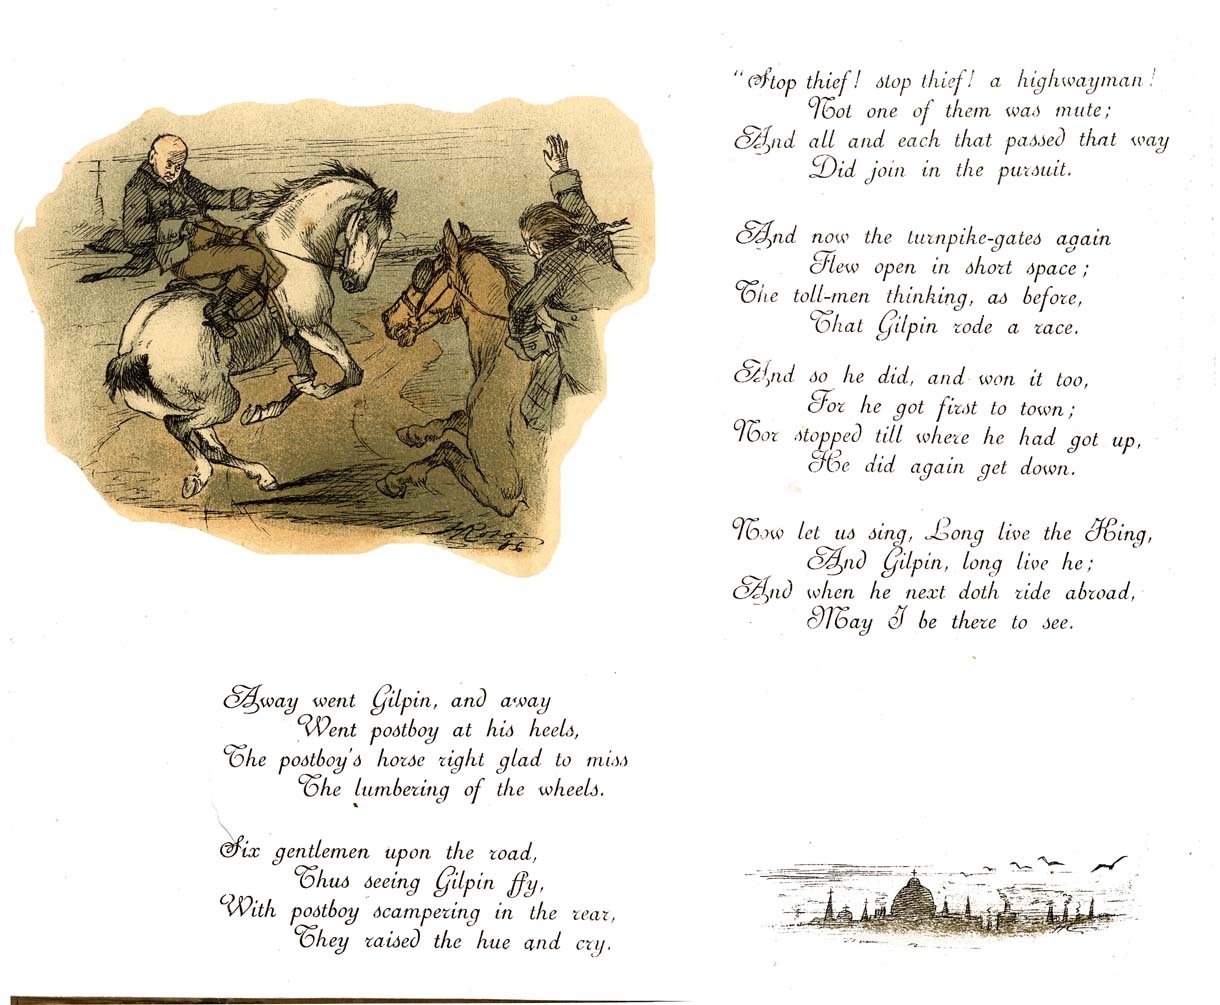 Away went Gilpin, and away
Went postboy at his heels,
The postboy's horse right glad to miss
The lumbering of the wheels.
Six gentlemen upon the road,
Thus seeing Gilpin fly,
With postboy scampering in the rear,
They raised the hue and cry.
"Stop thief! stop thief! a highwayman!
Not one of them was mute;
And all and each that passed that way
Did join in the pursuit.
And now the turnpike-gates again
Flew open in short space;
The toll-men thinking, as before,
That Gilpin rode a race.
And so he did, and won it too,
For he got first to town;
Nor stopped till where he had got up,
He did again get down.
Now let us sing, Long live the King,
And Gilpin, long live he;
And when he next doth ride abroad,
May I be there to see.